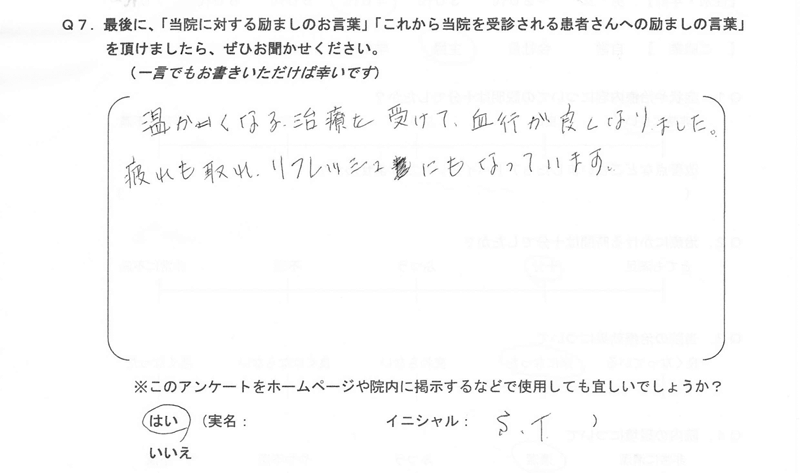 Q7．最後に、「当院に対する励ましのお言葉」「これから当院を受診される患者さんへの励ましの言葉」
を頂けましたら、ぜひお聞かせください。
（一言でもお書きいただけば幸いです）
温かくなる治療を受けて、血行が良くなりました。
疲れも取れ、リフレッシュにもなっています。
※このアンケートをホームページや院内に掲示するなどで使用しても宜しいでしょうか？
はい （実名： イニシャル： S.T ）
いいえ